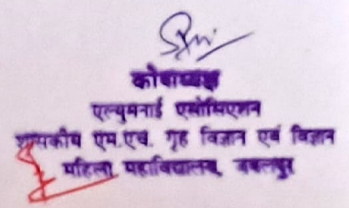 कोषाध्यक्ष
एल्युमनाई एसोसिएशन
शासकीय एम.एच. गृह विज्ञान एवं विज्ञान
महिला महाविद्यालय, जबलपुर